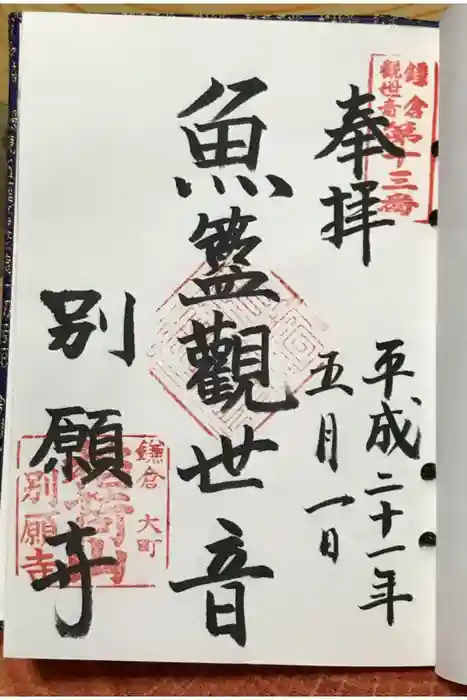 鎌倉
觀世音
第十三番
奉拝
平成二十一年
五月一日
魚籃觀世音
別願寺
鎌倉 大町
別願寺